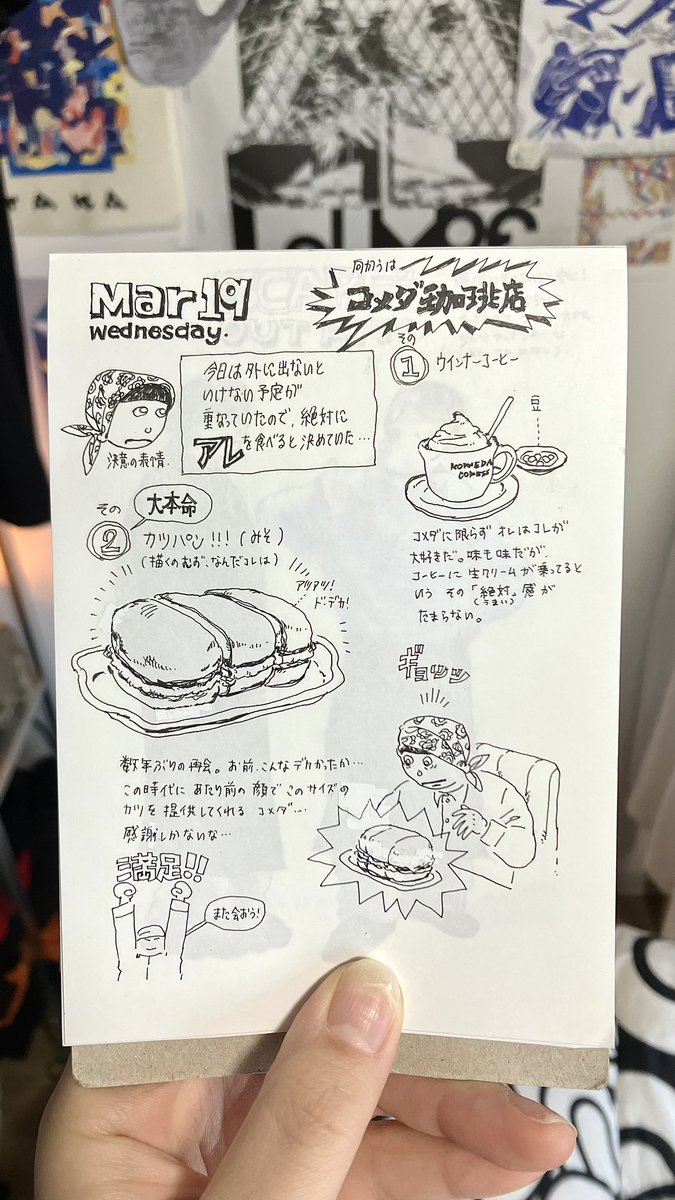 Mar 19
wednesday.
向かうは
コメダ珈琲店
今日は外に出ないと
いけない予定が
重なっていたので、絶対に
アレを食べると決めていた…
決意の表情.
その
1
ウインナーコーヒー
豆
KOMEDA
COFFEE
コメダに限らず オレはコレが
大好きだ。味も味だが、
コーヒーに生クリームが乗ってると
いう その「絶対」感が
(うまい)
たまらない。
その
大本命
2
カツパン!!!(みそ)
(描くのむず、なんだコレは)
アツアツ!
ド・デカ!
数年ぶりの再会。お前、こんなデカかったか…
この時代に あたり前の顔で このサイズの
カツを 提供してくれる コメダ…
感謝しかないな…
ギョッッ
満足!!
また会おう!